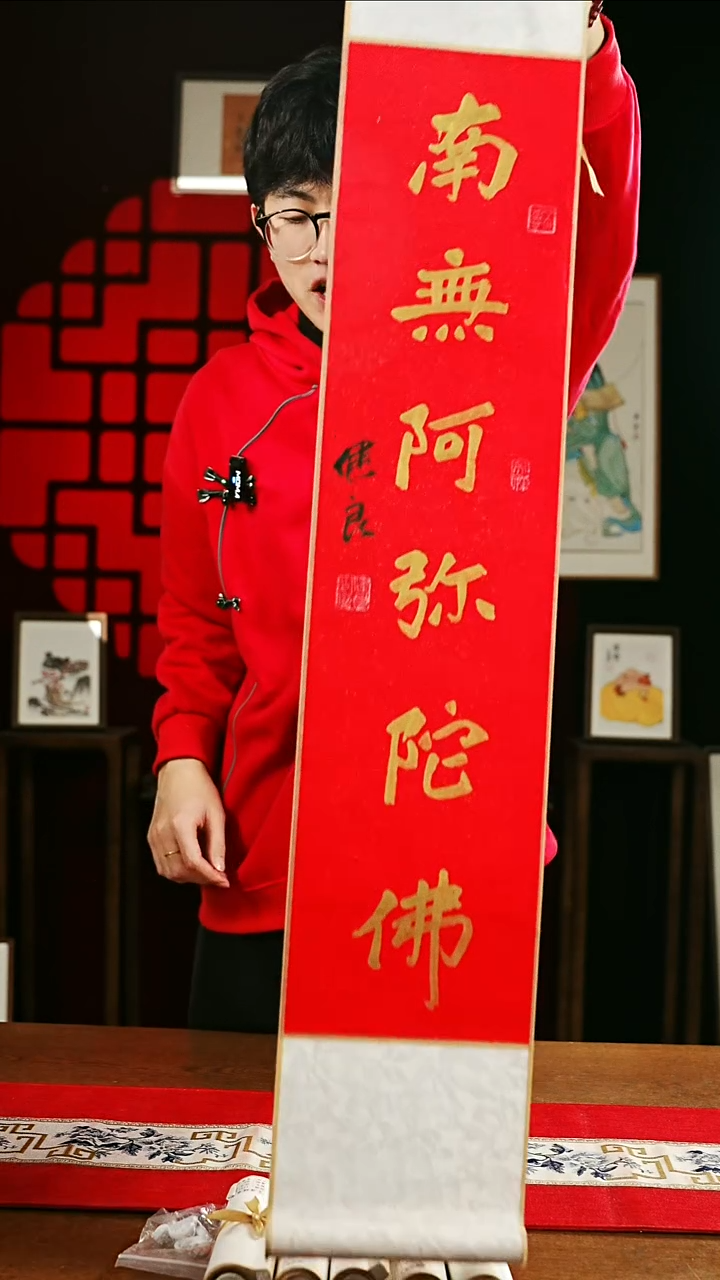 南無阿弥陀佛
健良